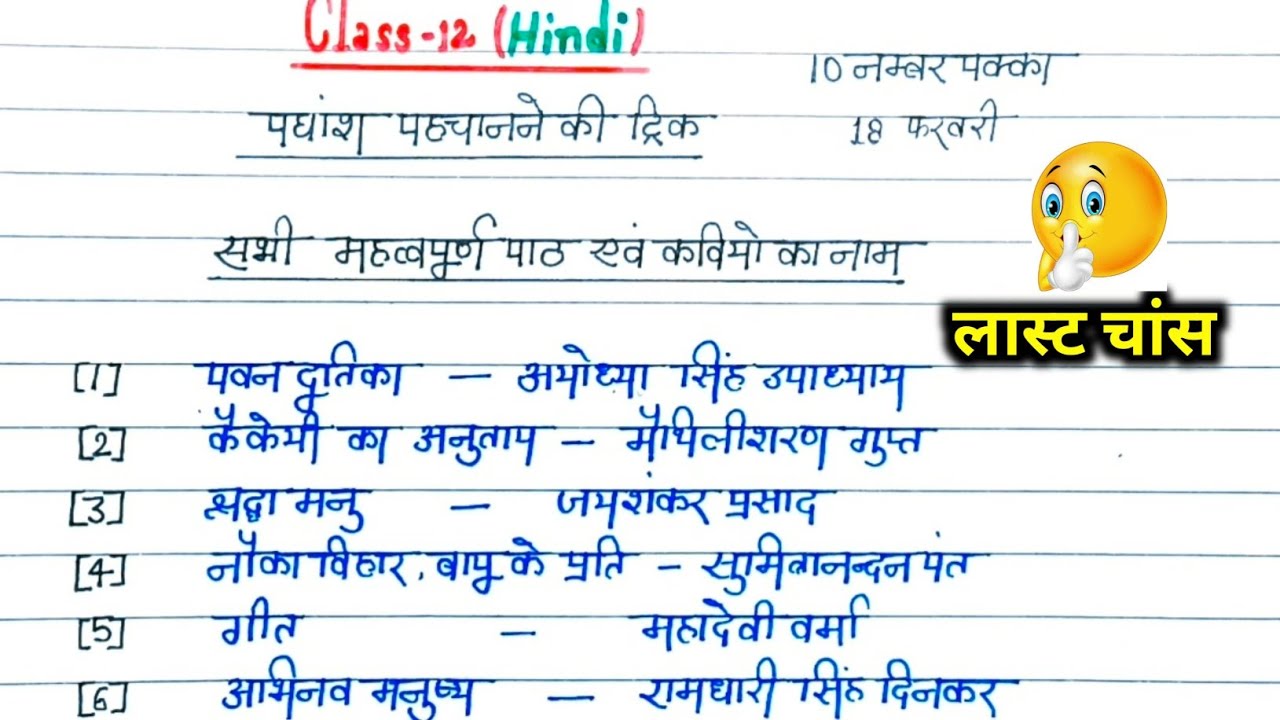 Class-12 (Hindi)
10 नम्बर पक्का
पद्यांश पहचानने की ट्रिक
18 फरवरी
सभी महत्वपूर्ण पाठ एवं कवियो का नाम
लास्ट चांस
[1] पवन दूतिका - अयोध्या सिंह उपाध्याय
[2] कैकेयी का अनुताप - मैथिलीशरण गुप्त
[3] श्रद्धा मनु - जयशंकर प्रसाद
[4] नौका विहार, बापू के प्रति - सुमित्रानन्दन पंत
[5] गीत - महादेवी वर्मा
[6] अभिनव मनुष्य - रामधारी सिंह दिनकर